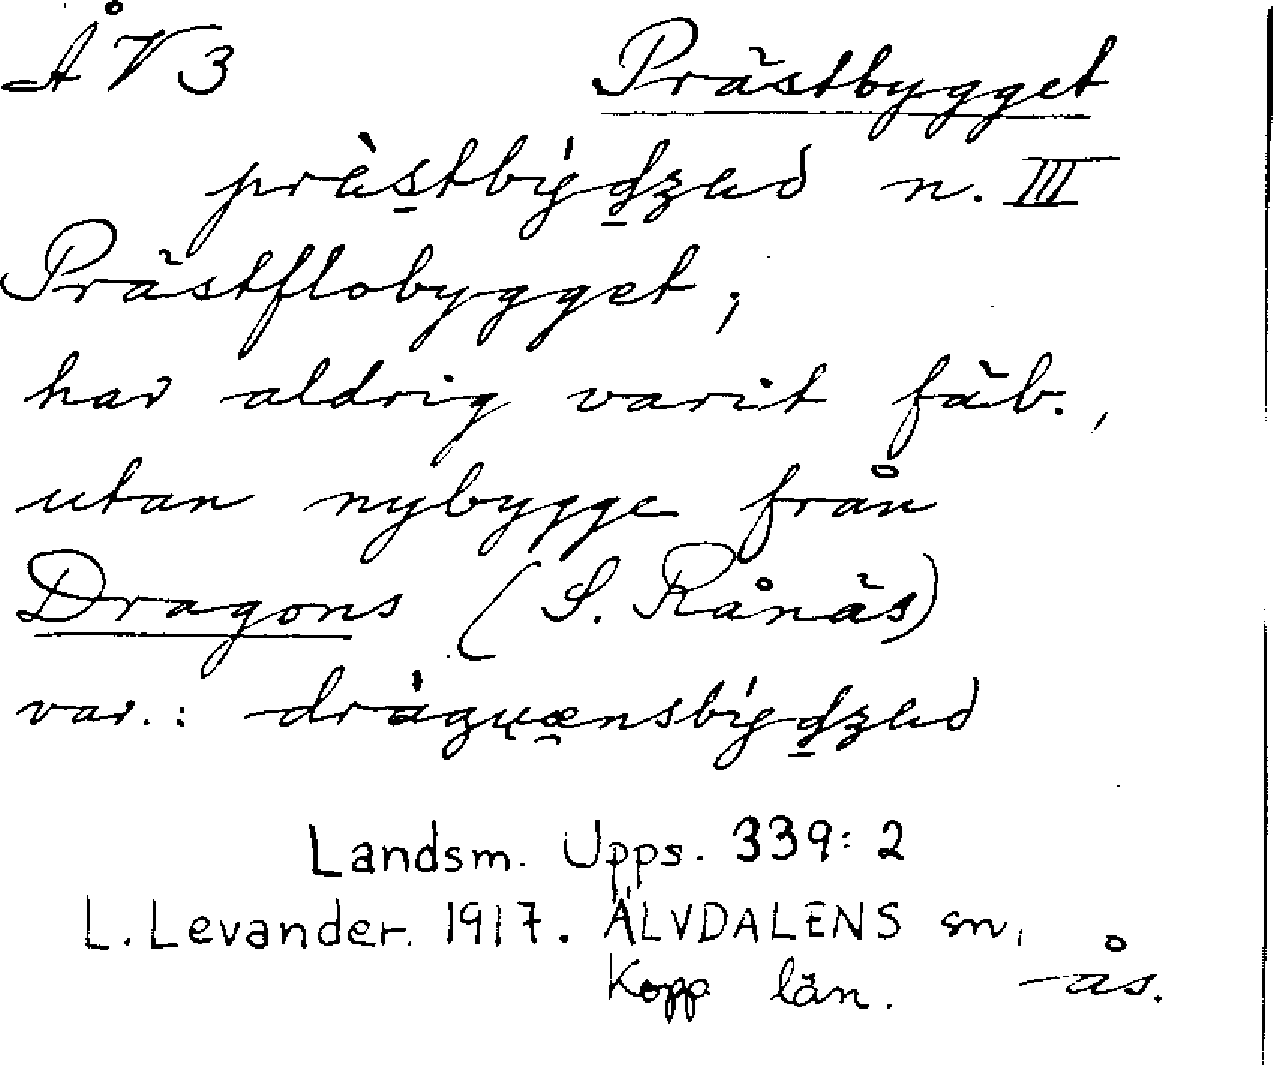 ÅV3 Prästbygget
prèstbýdzed n. III
Prästflobygget,
har aldrig varit fäb.,
utan nybygge från
Dragons (S. Rånäs)
var.: drágųænsbýdzed
Landsm. Upps. 339:2
L. Levander. 1917. ÄLVDALENS sn,
Kopp län. -ås.